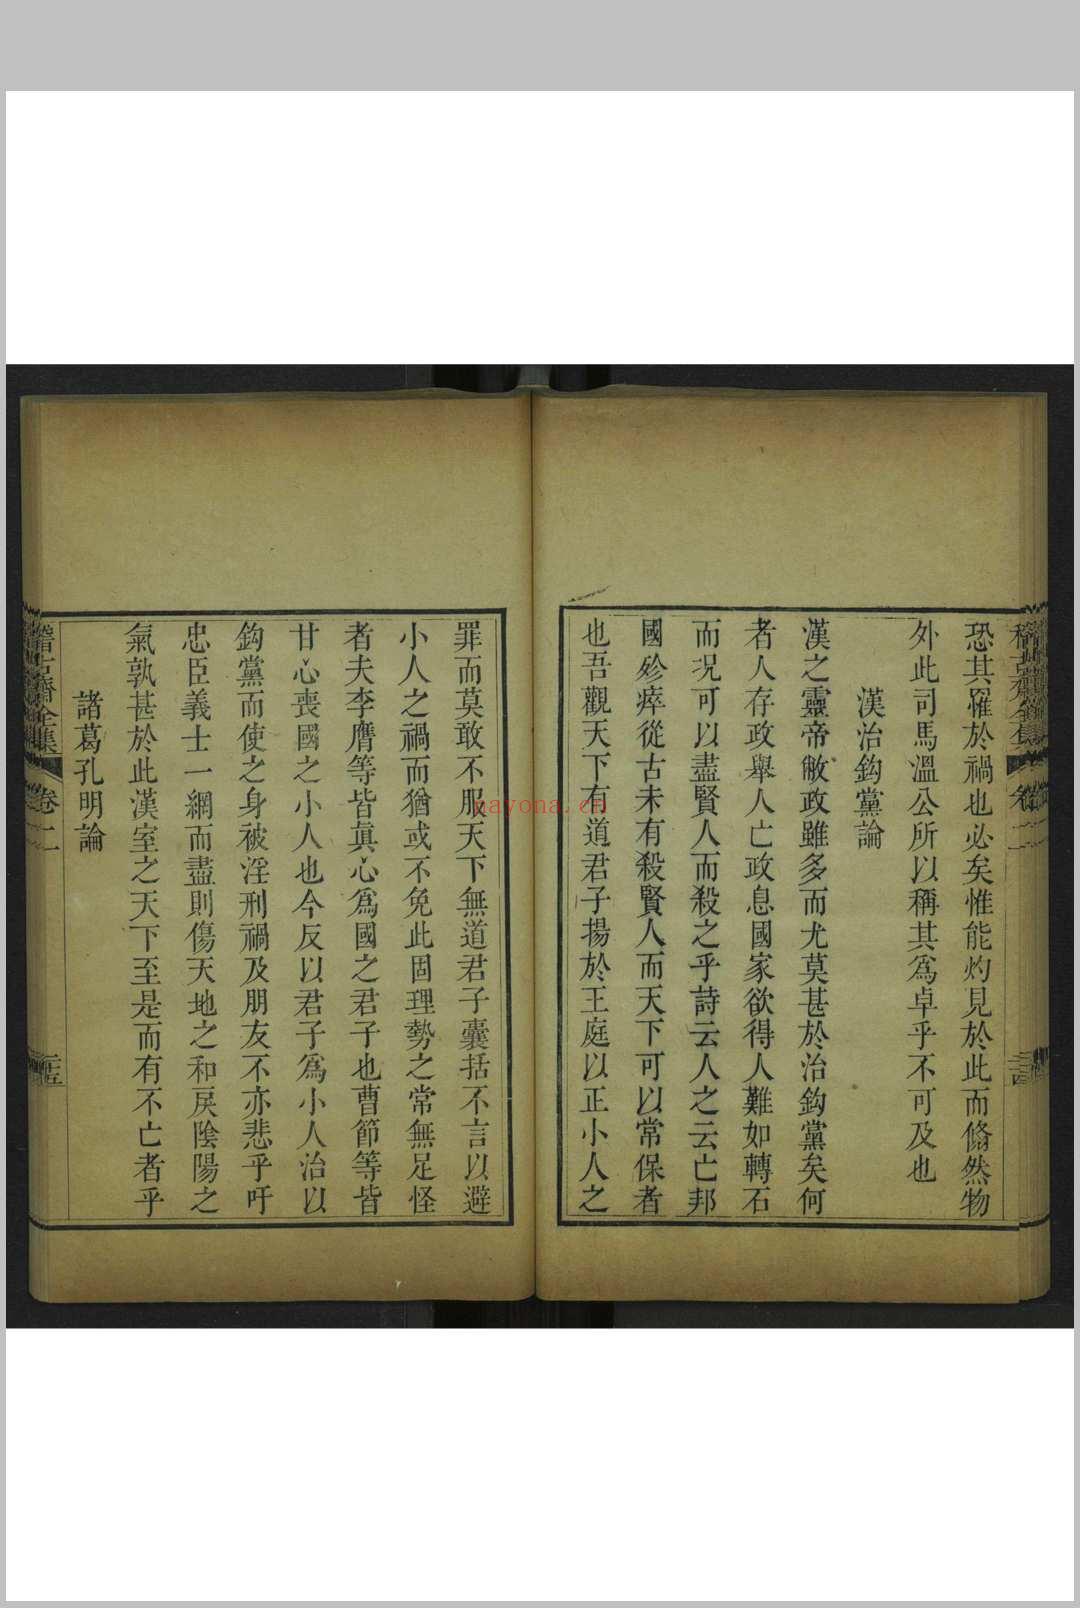 恐其罹於禍也必矣惟能灼見於此而翛然物
外此司馬溫公所以稱其爲卓乎不可及也
漢治鈎黨論
漢之靈帝敝政雖多而尤莫甚於治鈎黨矣何
者人存政舉人亡政息國家欲得人難如轉石
而况可以盡賢人而殺之乎詩云人之云亡邦
國殄瘁從古未有殺賢人而天下可以常保者
也吾觀天下有道君子揚於王庭以正小人之
罪而莫敢不服天下無道君子囊括不言以避
小人之禍而猶或不免此固理勢之常無足怪
者夫李膺等皆眞心爲國之君子也曹節等皆
甘心喪國之小人也今反以君子爲小人治以
鈎黨而使之身被淫刑禍及朋友不亦悲乎吁
忠臣義士一網而盡則傷天地之和戾陰陽之
氣孰甚於此漢室之天下至是而有不亡者乎
諸葛孔明論
稽古齋全集
卷二
二十五
nayona.cn